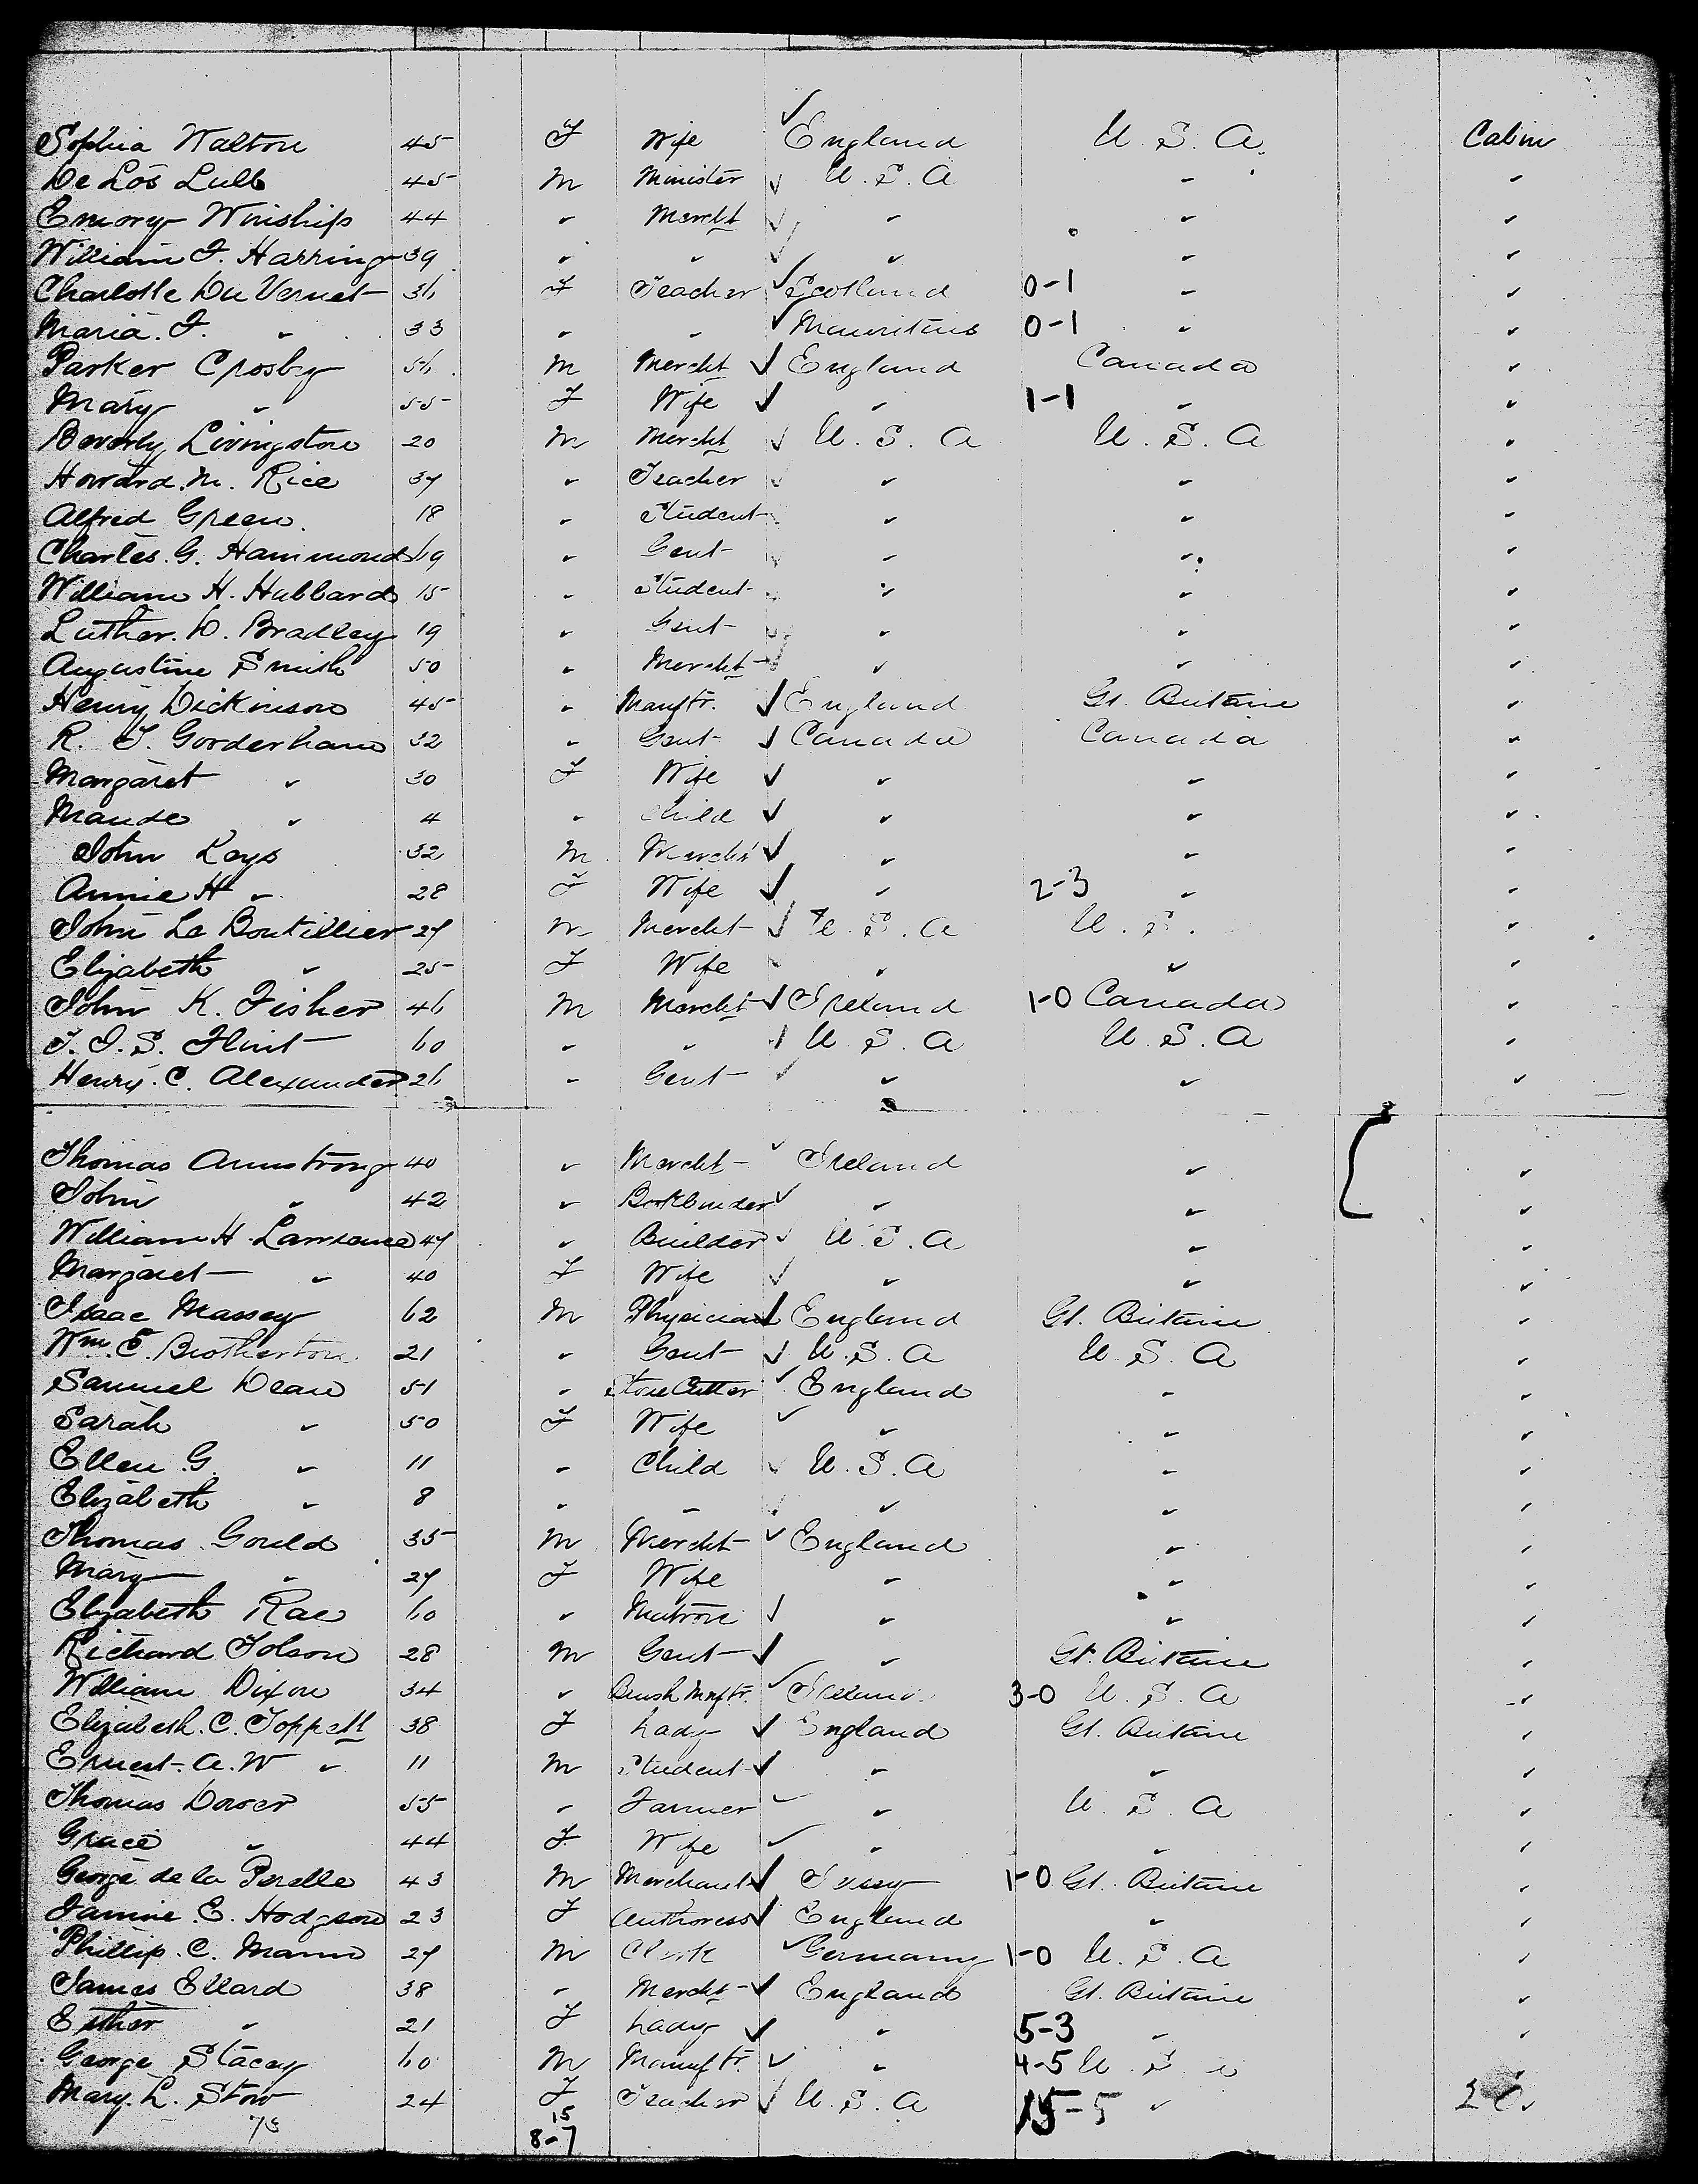 Sophia Walton 45 F Wife ✓ England U. S. A. Cabin
De Los Lull 45 M Minister ✓ U. S. A " "
Emory Winship 44 " Mercht ✓ " " "
William F. Harring 39 " " ✓ " " "
Charlotte Du Vernet 36 F Teacher ✓ Scotland 0-1 " "
Maria. F. " 33 " " ✓ Mauritius 0-1 " "
Parker Crosby 56 M Mercht ✓ England Canada "
Mary " 55 F Wife ✓ " 1-1 " "
Beverly Livingston 20 M Mercht ✓ U. S. A U. S. A "
Howard. M. Rice 37 " Teacher ✓ " " "
Alfred Green. 18 " Student " " "
Charles. G. Hammond 69 " Gent ✓ " " "
William H. Hubbard 15 " Student " " "
Luther. D. Bradley 19 " Gent ✓ " " "
Augustine Smith 50 " Mercht ✓ " " "
Henry Dickinson 45 " Manftr. ✓ England Gt. Britain "
R. T. Gorderham 32 " Gent ✓ Canada Canada "
Margaret " 30 F Wife ✓ " " "
Maude " 4 " Child ✓ " " "
John Leys 32 M Mercht ✓ " " "
Annie H " 28 F Wife ✓ " 2-3 " "
John Le Boutillier 27 M Mercht ✓ U. S. A U. S. "
Elizabeth " 25 F Wife " " "
John K. Fisher 46 M Mercht ✓ Ireland 1-0 Canada "
T. I. S. Flint 60 " " ✓ U. S. A U. S. A "
Henry. C. Alexander 26 " Gent ✓ " " "
Thomas Armstrong 40 " Mercht ✓ Ireland " "
John " 42 " Bookbinder ✓ " " "
William H. Lawrence 47 " Builder ✓ U. S. A " "
Margaret " 40 F Wife ✓ " " "
Isaac Massey 62 M Physician ✓ England Gt. Britain "
Wm. E. Brotherton. 21 " Gent ✓ U. S. A U. S. A "
Samuel Dean 51 " Stone Cutter ✓ England " "
Sarah " 50 F Wife ✓ " " "
Ellen G. " 11 " Child ✓ U. S. A " "
Elizabeth " 8 " " ✓ " " "
Thomas Gould 35 M Mercht ✓ England " "
Mary " 27 F Wife " " "
Elizabeth Rae 60 " Matron ✓ " " "
Richard Tolson 28 M Gent ✓ " Gt. Britain "
William Dixon 34 " Brush Mnftr. ✓ Ireland 3-0 U. S. A "
Elizabeth. C. Toppett 38 F Lady ✓ England Gt. Britain "
Ernest. A. W " 11 M Student ✓ " " "
Thomas Dower 55 " Farmer ✓ " U. S. A "
Grace " 44 F Wife ✓ " " "
George de la Perelle 43 M Merchant ✓ Jersey 1-0 Gt. Britain "
Fannie. E. Hodgson 23 F Authoress ✓ England " "
Phillip. C. Mann 27 M Clerk ✓ Germany 1-0 U. S. A "
James Ellard 38 " Mercht ✓ England Gt. Britain "
Esther " 21 F Lady ✓ " 5-3 " "
George Stacey 60 M Manuftr. ✓ " 4-5 U. S. A
Mary. L. Stow 24 F Teacher ✓ U. S. A 15-5 "
15
8-7